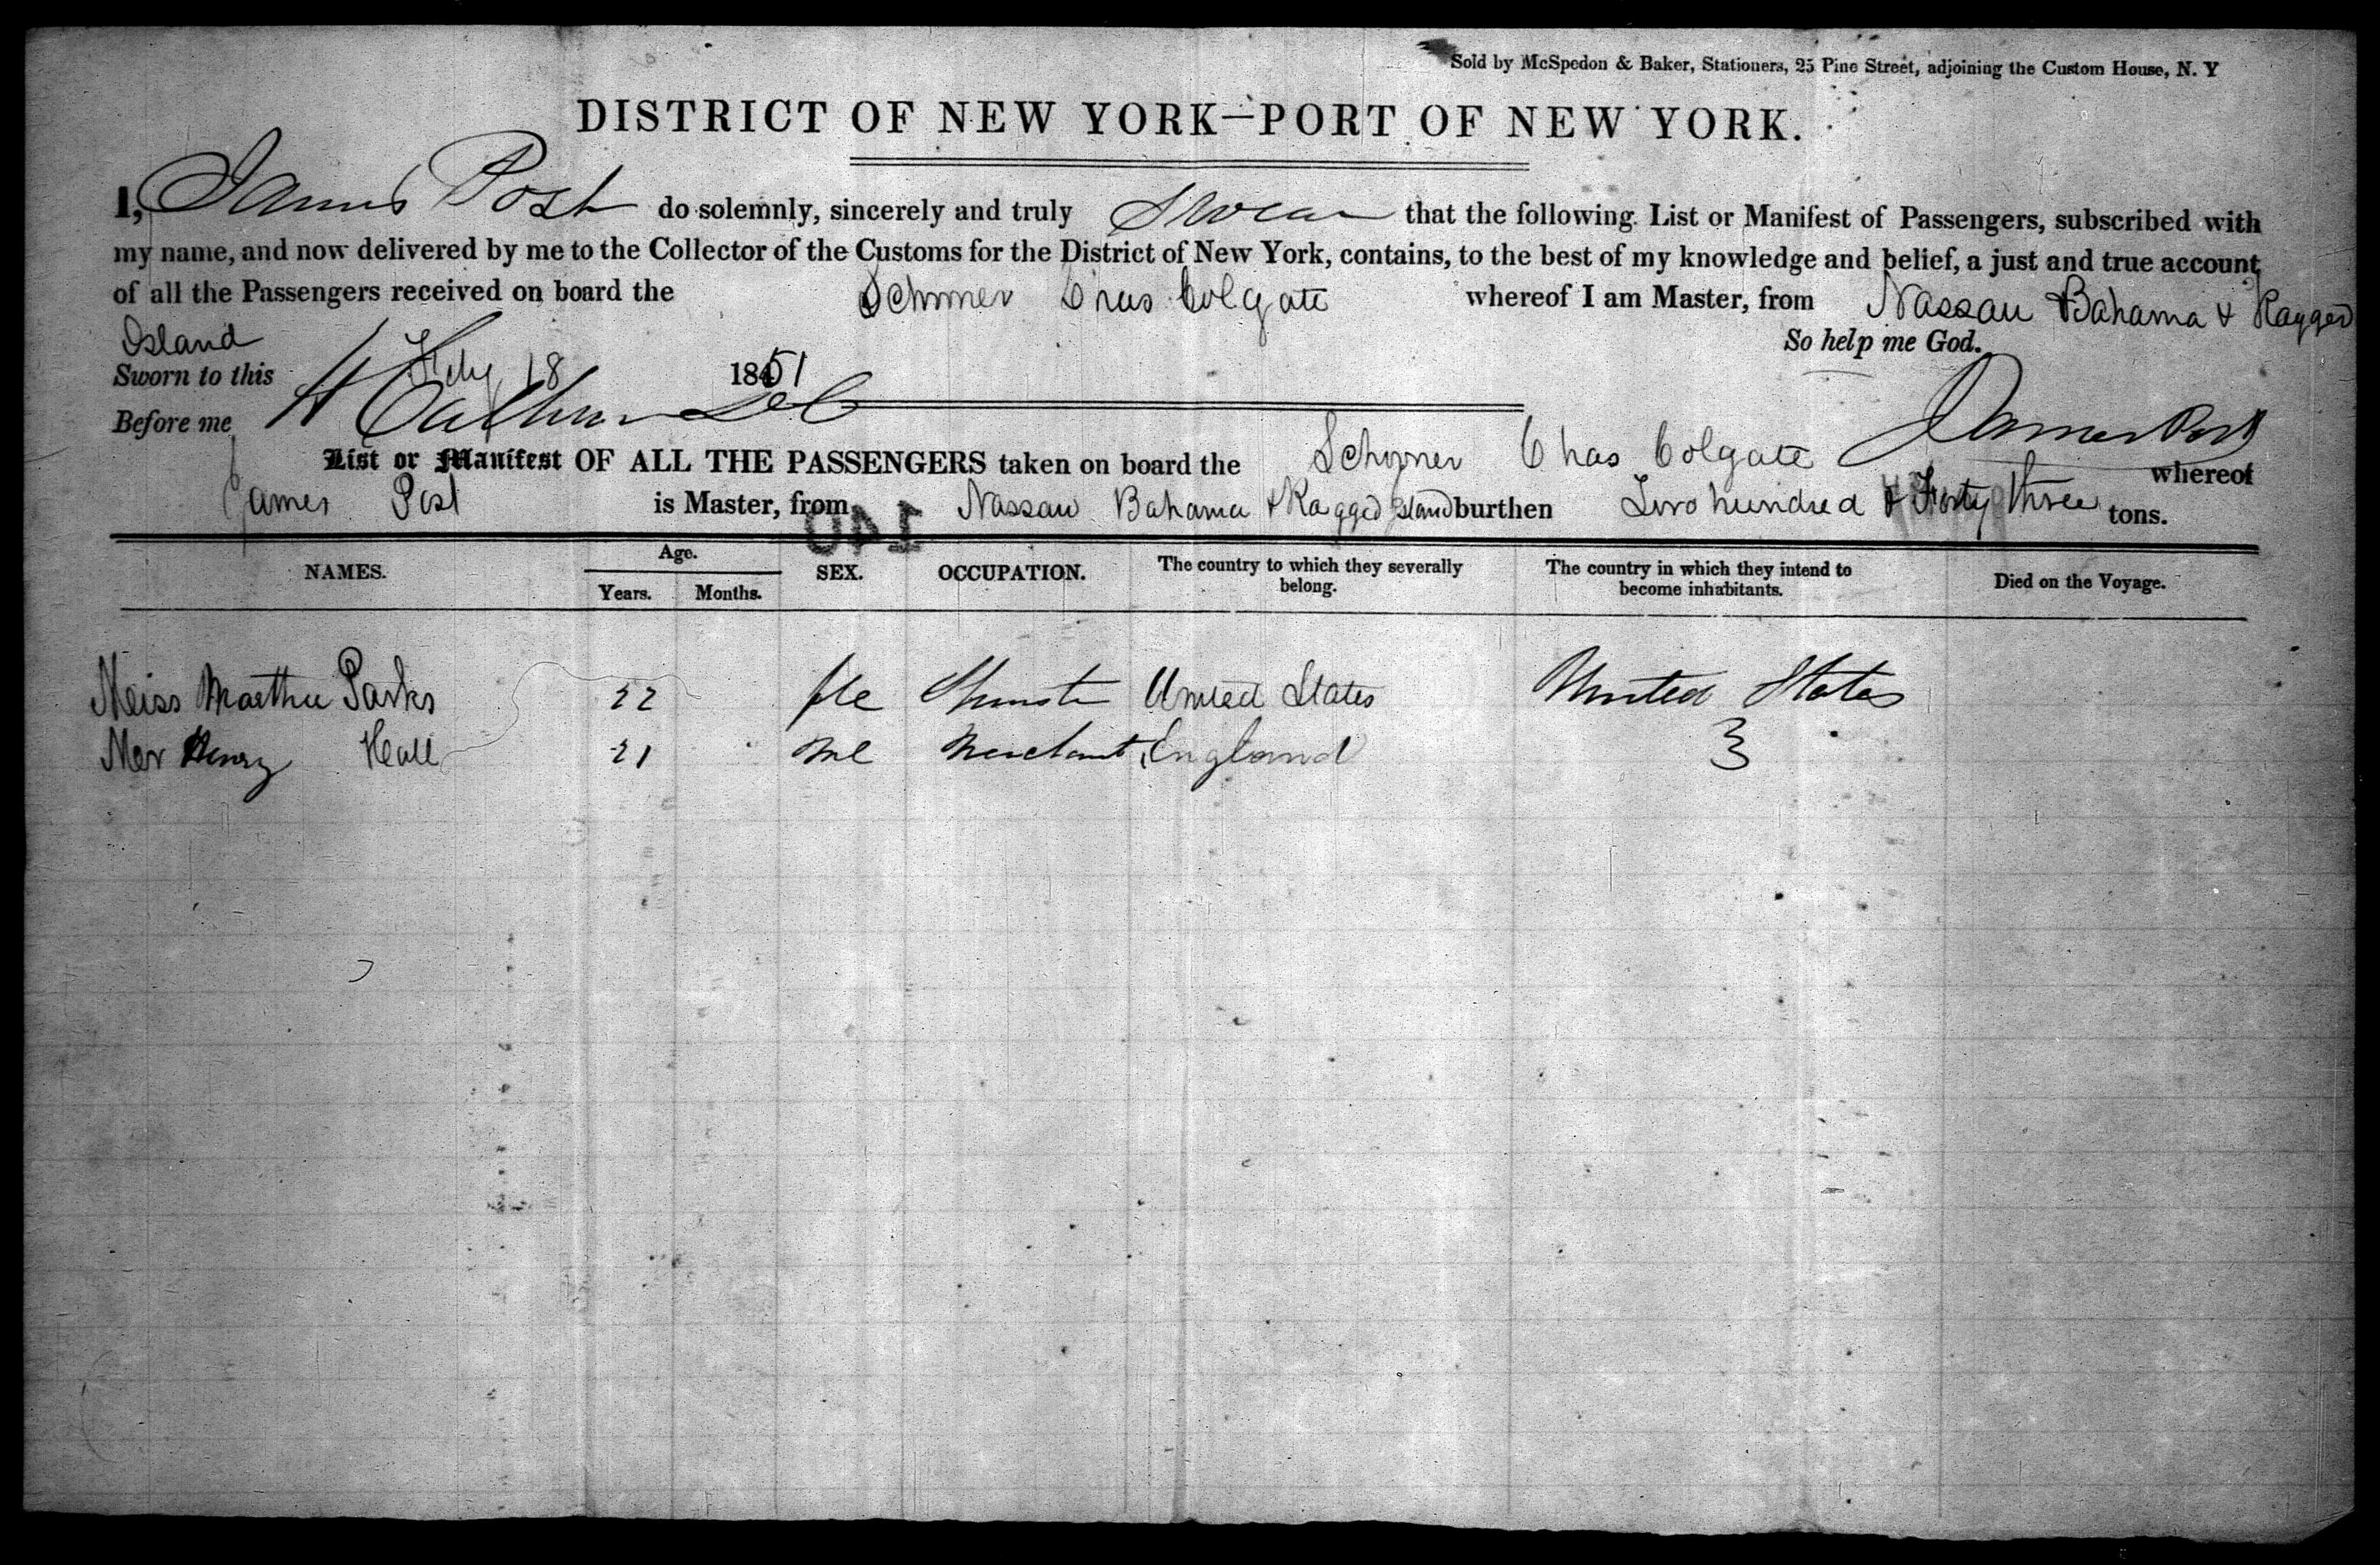 Sold by McSpedon & Baker, Stationers, 25 Pine Street, adjoining the Custom House, N. Y
DISTRICT OF NEW YORK—PORT OF NEW YORK.
I, James Post do solemnly, sincerely and truly Swear that the following List or Manifest of Passengers, subscribed with
my name, and now delivered by me to the Collector of the Customs for the District of New York, contains, to the best of my knowledge and belief, a just and true account
of all the Passengers received on board the Schooner Chas Colgate whereof I am Master, from Nassau Bahama & Ragged
Island
So help me God.
Sworn to this Feby 18 1851
Before me H Calhoun James Post
List or Manifest OF ALL THE PASSENGERS taken on board the Schooner Chas Colgate whereof
James Post is Master, from Nassau Bahama & Ragged Island burthen Two hundred & Forty three tons.
140
NAMES. Age. Years. Months. SEX. OCCUPATION. The country to which they severally belong. The country in which they intend to become inhabitants. Died on the Voyage.
Miss Martha Parks 22 fle United States United States
Mr Henry Hall 21 Me Merchant England